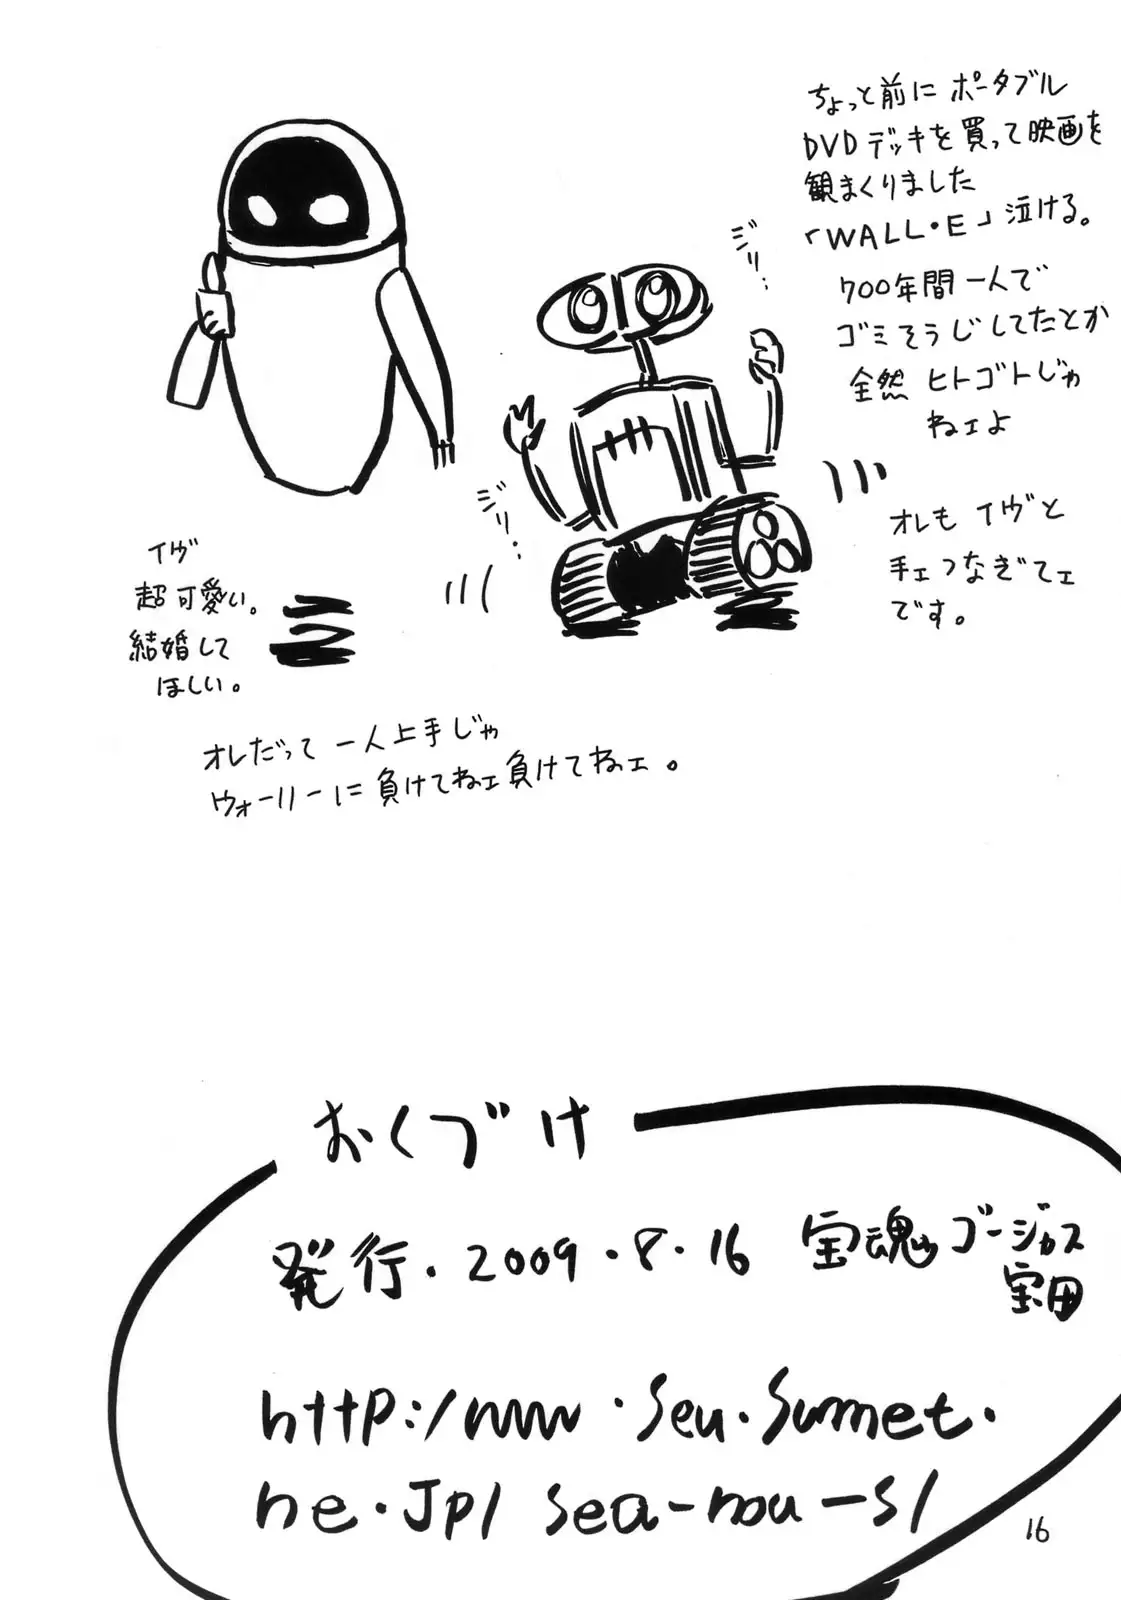 ちょっと前に ポータブル
DVDデッキを買って映画を
観まくりました
「WALL・E」泣ける。
700年間一人で
ゴミそうじしてたとか
全然 ヒトゴトじゃ
ねェよ
ジリ…
ジリ…
オレも イヴと
手ェつなぎてェ
です。
イヴ
超可愛い。
結婚して
ほしい。
オレだって 一人上手じゃ
ウォーリーに負けてねェ負けてねェ。
おくづけ
発行・2009・8・16 宝魂 ゴージャス
宝田
http:/www・seu・sunnet・
ne・Jp/ sea-nou-s/
16